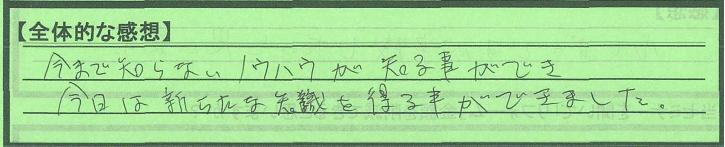 【全体的な感想】
今まで知らないノウハウが知る事ができ
今日は新らたな知識を得る事ができました。